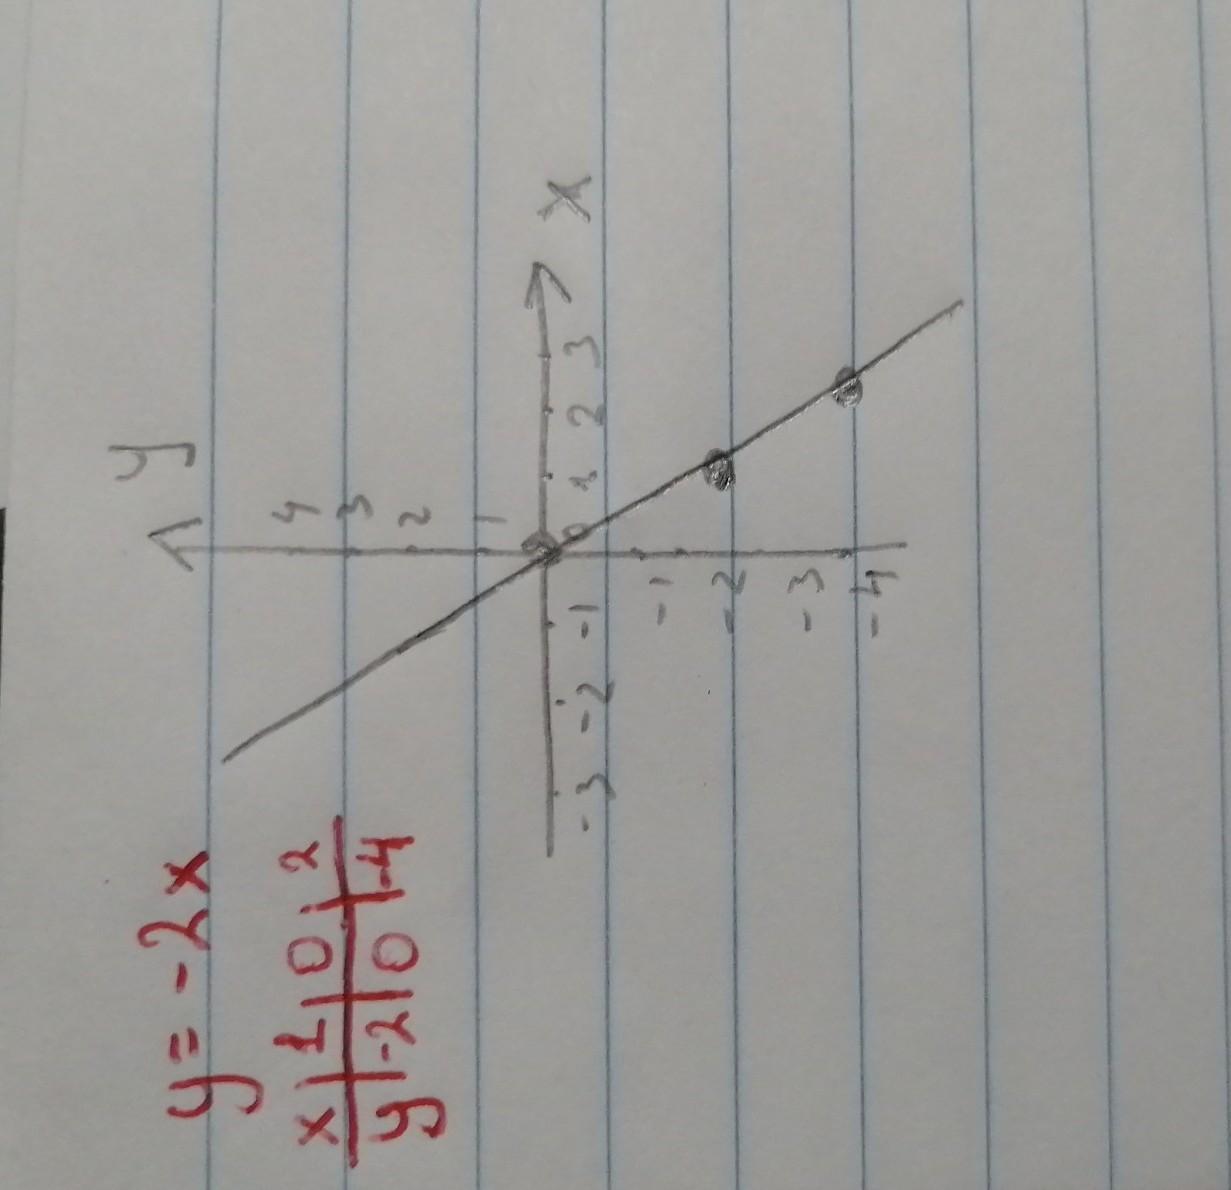 y = -2x
x | 1 | 0 | 2
y | -2 | 0 | -4
y
4
3
2
1
x
-3 -2 -1 0 1 2 3
-1
-2
-3
-4